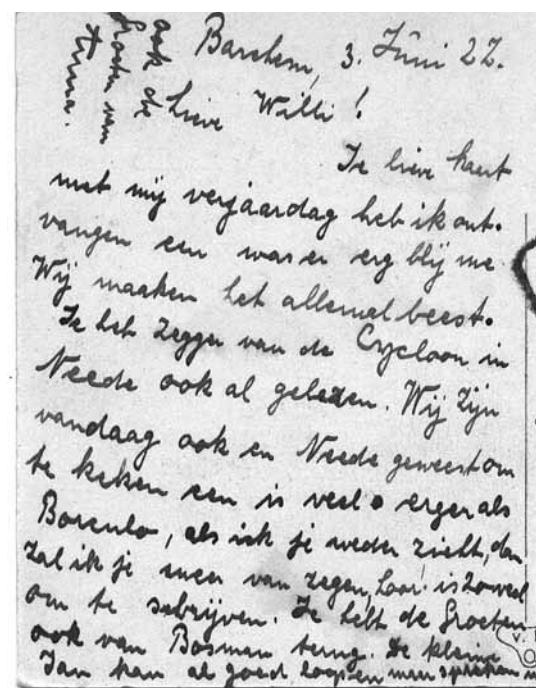 Barchem, 3. Juni 27.
Lieve Willi!
Je lieve kaart
met mij verjaardag heb ik ont-
vangen een was er erg blij me
Wij maaken het allemal beest.
Je het zeggen van de Cycloon in
Neede ook al gelezen. Wij zijn
vandaag ook en Neede geweest om
te keken een is veel erger als
Borculo, als ick je weder zieht, dan
zal ik je meer van zegen, is zoveel
om te schrijven. Je hebt de Groeten
ook van Bosman terug. De kleine
Jan kan al goed loopen maar spreken
ook de
Groeten van